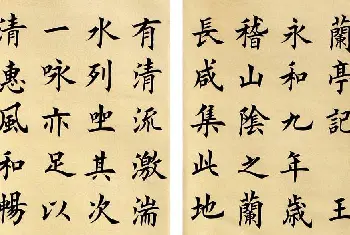 蘭亭記 王
永和九年歲
稽山陰之蘭
長咸集此地
有清流激湍
水列坐其次
一咏亦足以
清惠風和暢